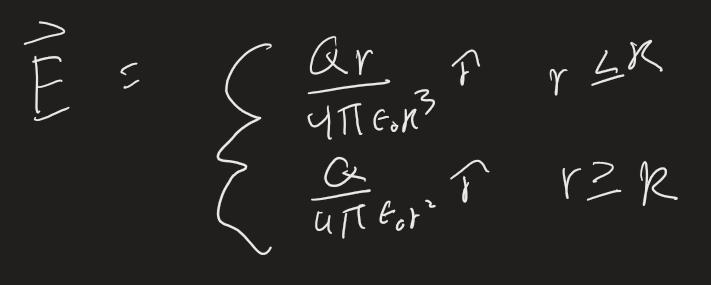 \vec{E} = \begin{cases} \frac{Qr}{4\pi\epsilon_0 R^3} \hat{r} & r \leq R \\ \frac{Q}{4\pi\epsilon_0 r^2} \hat{r} & r \geq R \end{cases}